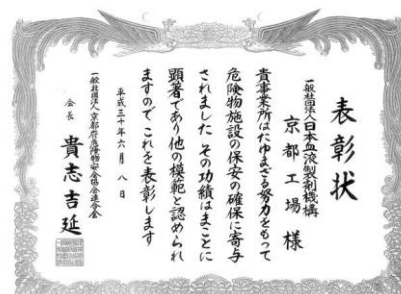 表彰状
一般社団法人日本血液製剤機構
京都工場 様
貴事業所はたゆまざる努力をもって
危険物施設の保安の確保に寄与
されました その功績はまことに
顕著であり他の模範と認められ
ますので これを表彰します
平成三十年六月 八 日
一般社団法人京都府危険物安全協会連合会
会長 貴志吉延